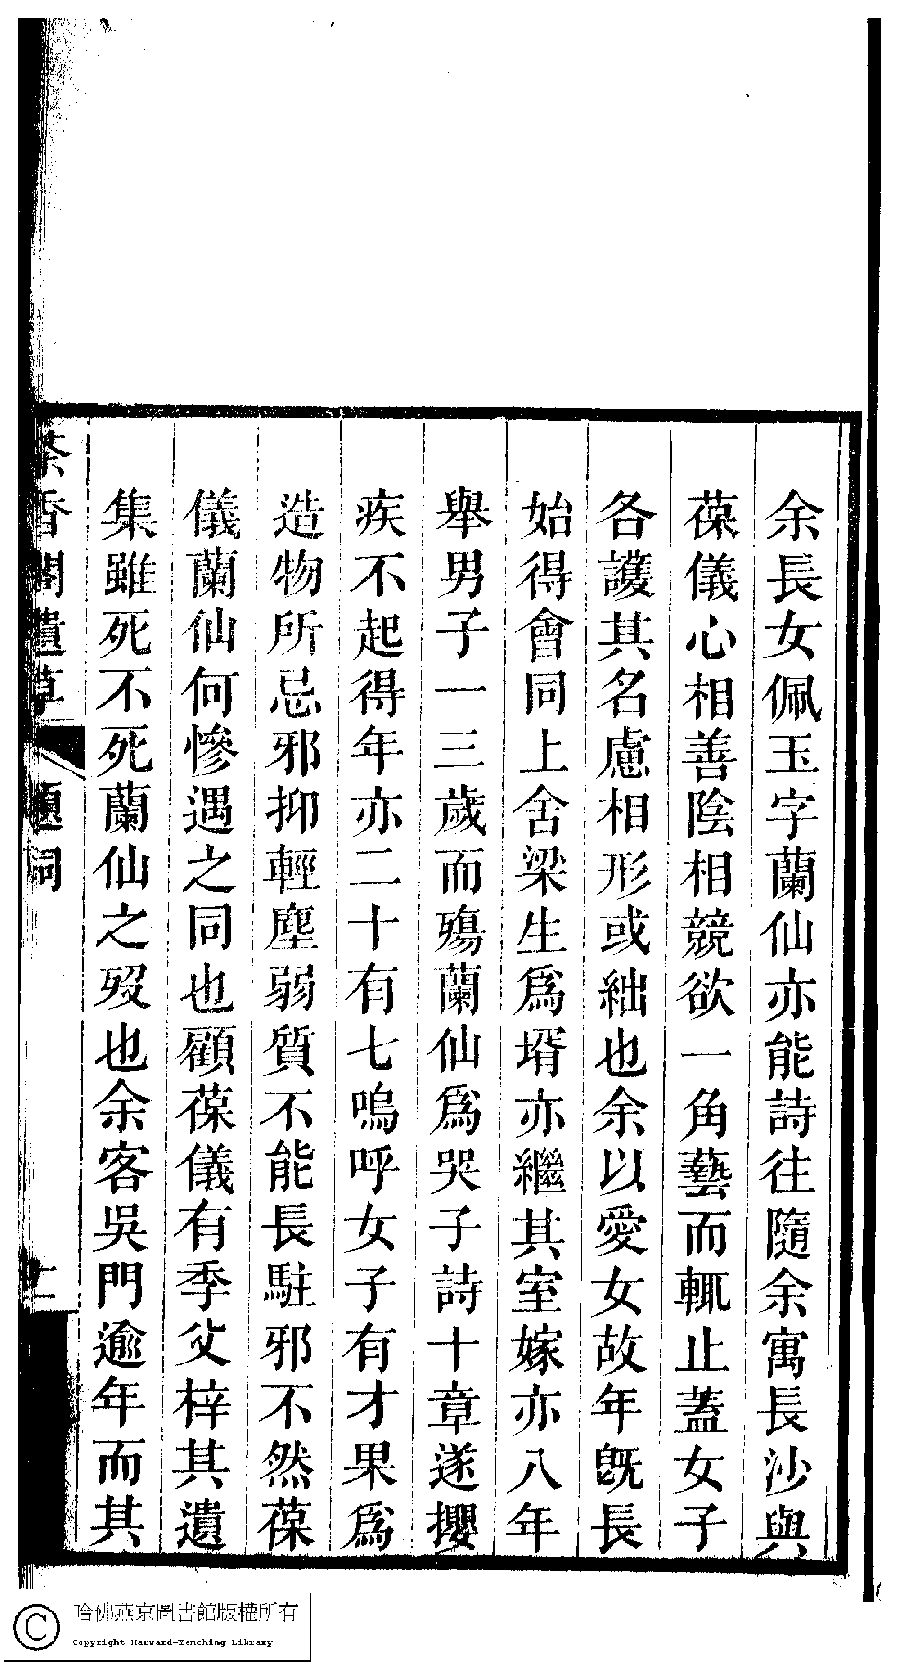 余長女佩玉字蘭仙亦能詩往隨余寓長沙與
葆儀心相善陰相競欲一角藝而輒止蓋女子
各護其名慮相形或絀也余以愛女故年旣長
始得會同上舍梁生爲壻亦繼其室嫁亦八年
舉男子一三歲而殤蘭仙爲哭子詩十章遂攖
疾不起得年亦二十有七嗚呼女子有才果爲
造物所忌邪抑輕塵弱質不能長駐邪不然葆
儀蘭仙何慘遇之同也顧葆儀有季父梓其遺
集雖死不死蘭仙之歿也余客吳門逾年而其
茶香閣遺草
題詞
哈佛燕京圖書館版權所有
Copyright Harvard-Yenching Library